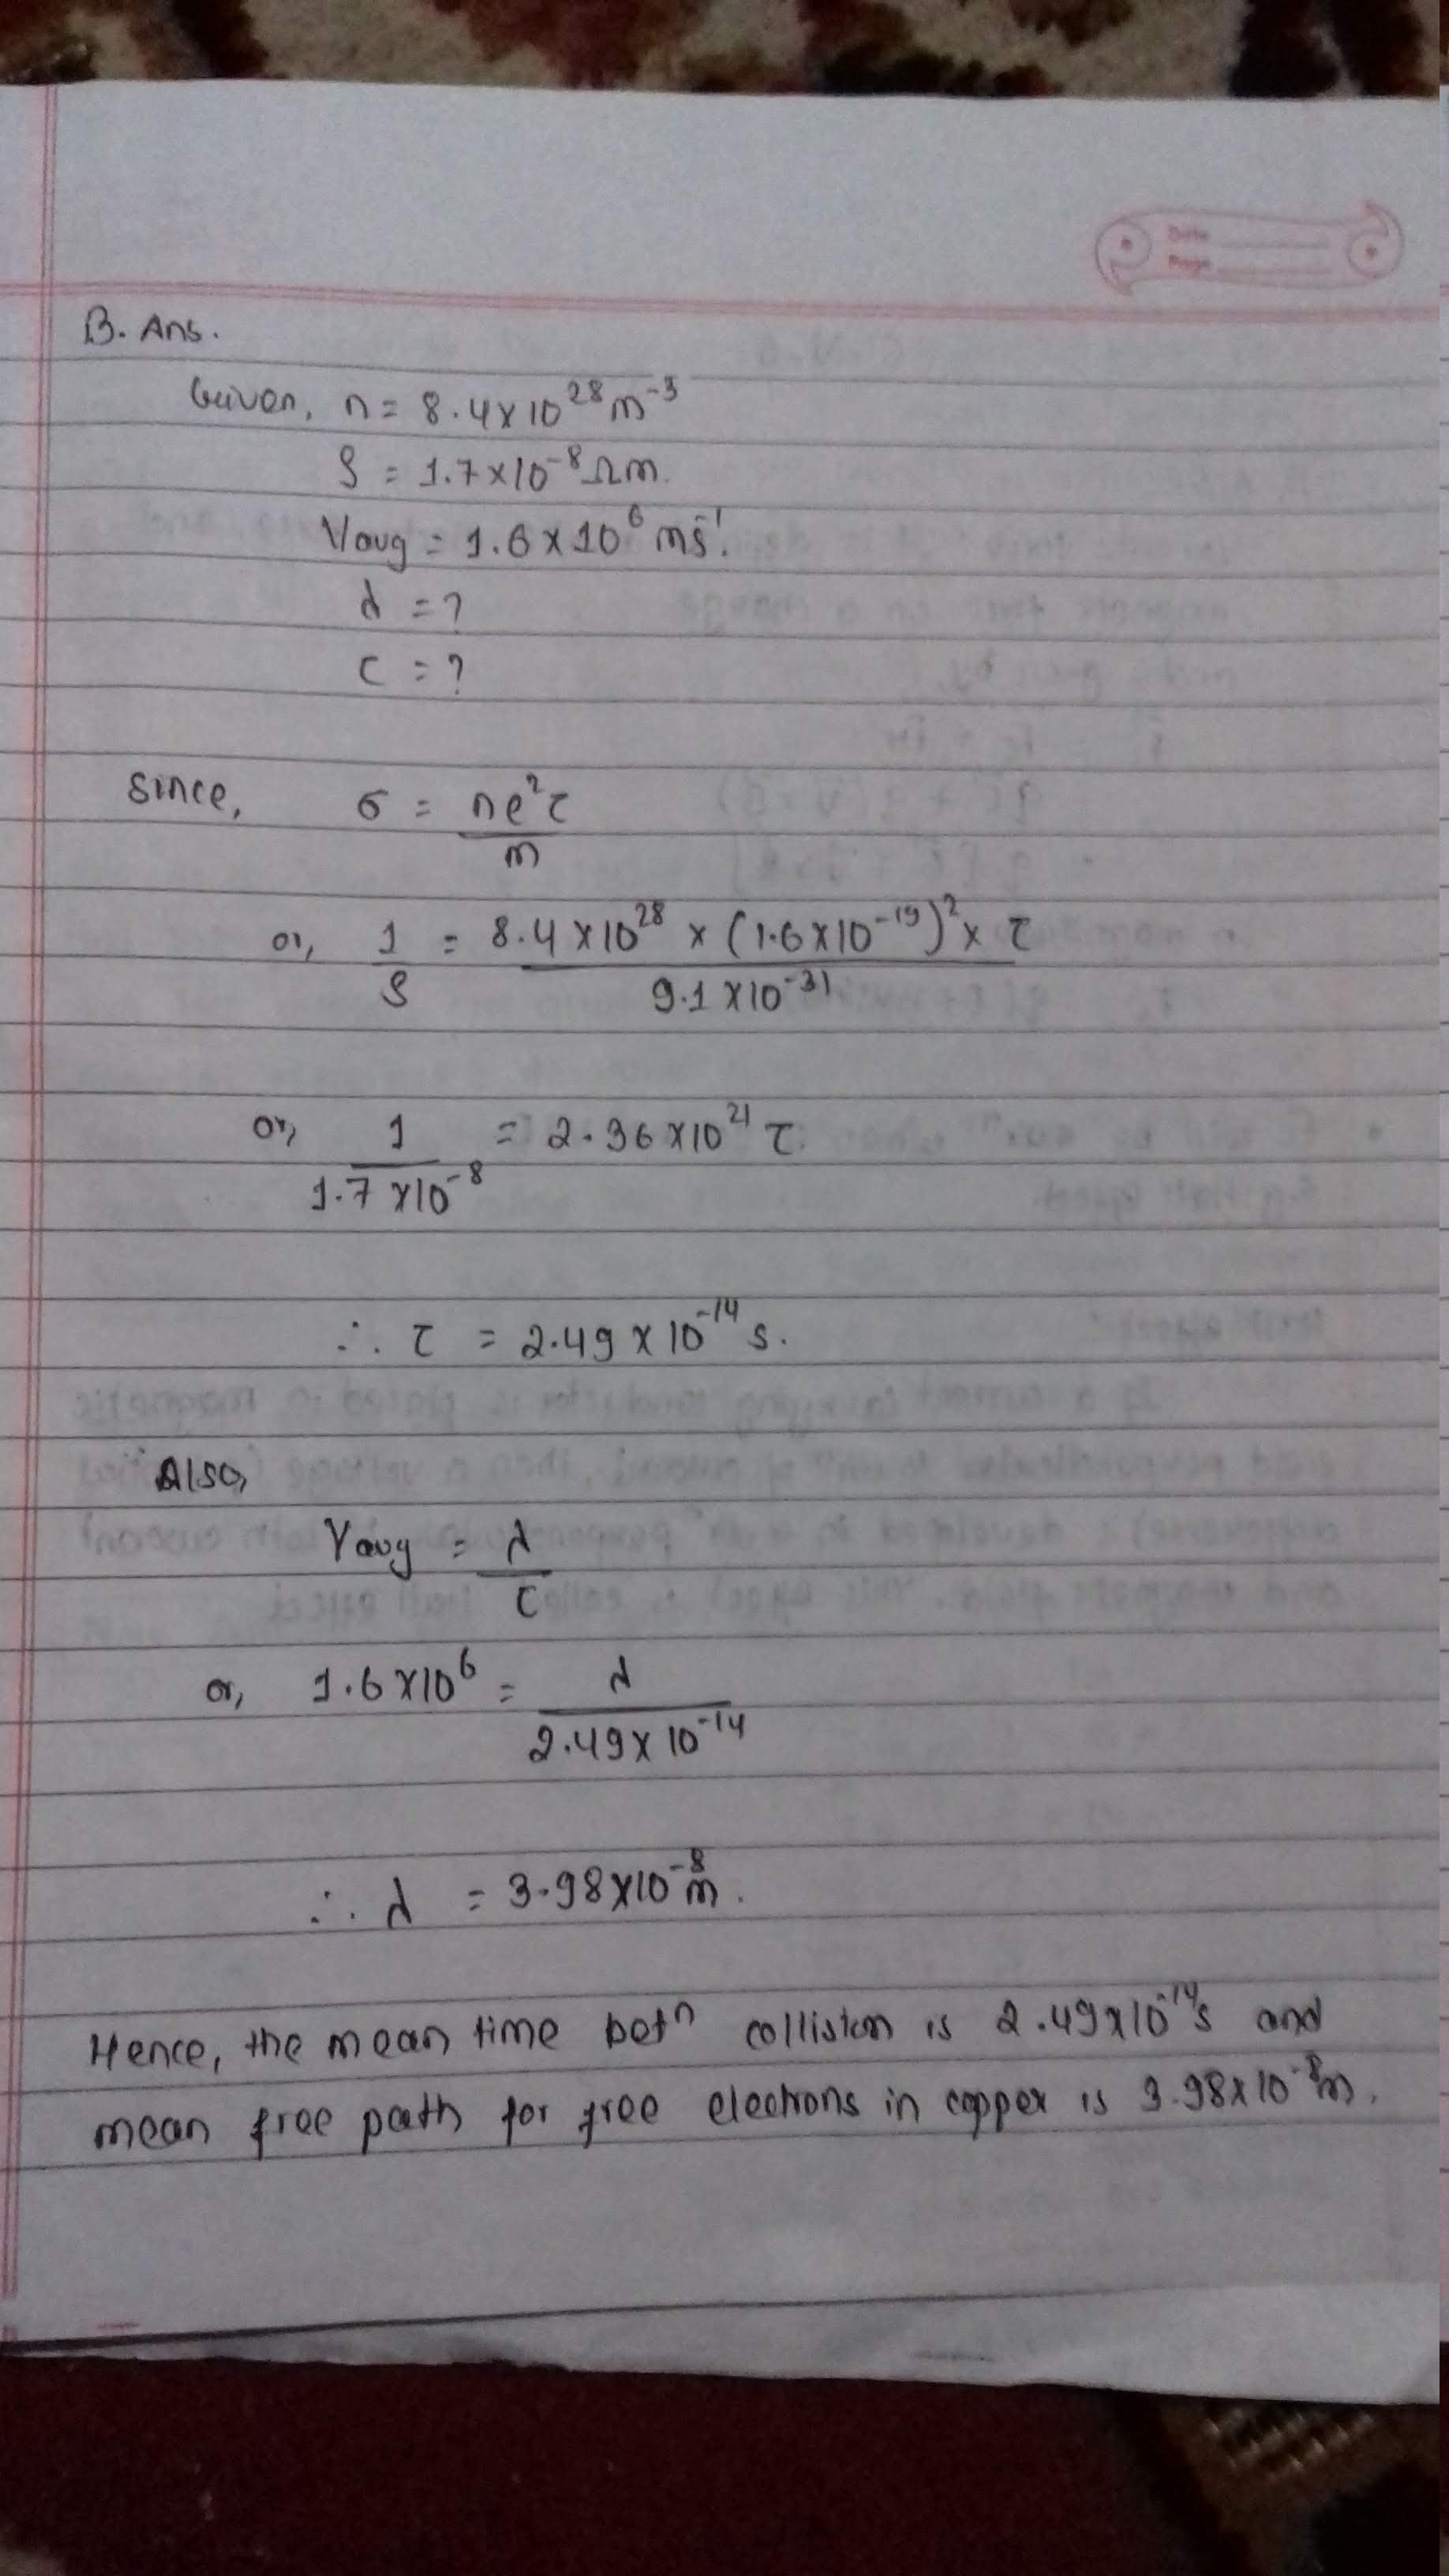 Date
Page
B. Ans.
Given, n = 8.4×10²⁸ m⁻³
ρ = 1.7×10⁻⁸ Ωm.
Vavg = 1.6×10⁶ ms⁻¹.
λ = ?
τ = ?
Since, σ = ne²τ / m
or, 1/ρ = 8.4×10²⁸ × (1.6×10⁻¹⁹)² × τ / 9.1×10⁻³¹
or, 1 / 1.7×10⁻⁸ = 2.36×10²¹ τ
∴ τ = 2.49×10⁻¹⁴ s.
Also,
Vavg = λ / τ
or, 1.6×10⁶ = λ / 2.49×10⁻¹⁴
∴ λ = 3.98×10⁻⁸ m.
Hence, the mean time betⁿ collision is 2.49×10⁻¹⁴s and
mean free path for free electrons in copper is 3.98×10⁻⁸m.